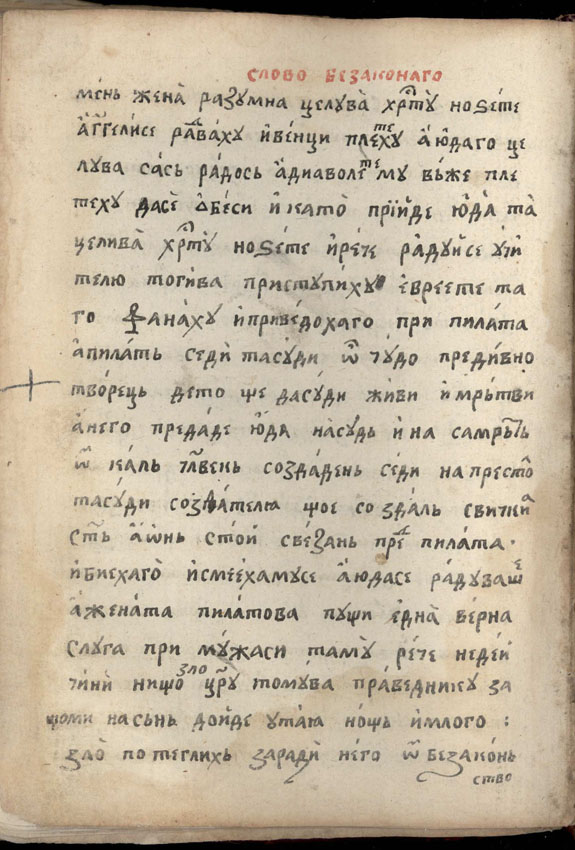 слово безаконаго
мень жена̀ разумна целува̀ хрⷭ҇тꙋ ноѕете
а҆гг҃елисе рⷣаваху и҆венци плеⷮеху а҆ю҆даго це
лува сась ра́дось а҆диаволеⷮему въже пле
теху дасѐ ѡ҆беси и҆ като̀ прїи҆де ю҆да та̀
целива̀ хрⷭ҇тꙋ ноѕете и҆рече ра́дуи҆се учи
телю тогива приступиху е҆вреете та
го фанаху и҆приведохаго при пила́та
а҆пила́ть седи̇̀ тасу́ди ѿ чу́до преди́вно
творець дето ще дасу́ди живи и҆ мрьтви
а҆него преда́де ю҆да на́судь и҆ на самрⷮ҇ь
ѿ ка́ль глⷡ҇ень созда́день седи на престо̑
тасу́ди созда́телꙗ щое созда́ль свички
сⷮ҇ь а҆ѡ҆нь стои̇̀ све́зань преⷣ пила́та ·
и҆биехаго̀ и҆смее́хамусе а҆юдасе ра́дувашⷷ
а҆жена́та пила́това пущи е҆дна̀ верна
слуга при му́жаси таму̀ ре́че неде́и
чини̇̀ нищо зло цр҃ꙋ томува пра́веднику за
щоми насьнь до́йде ута́ꙗ нощь и҆млого :
зло̀ потеглихь заради̇̀ него ѿ безаконь
ство